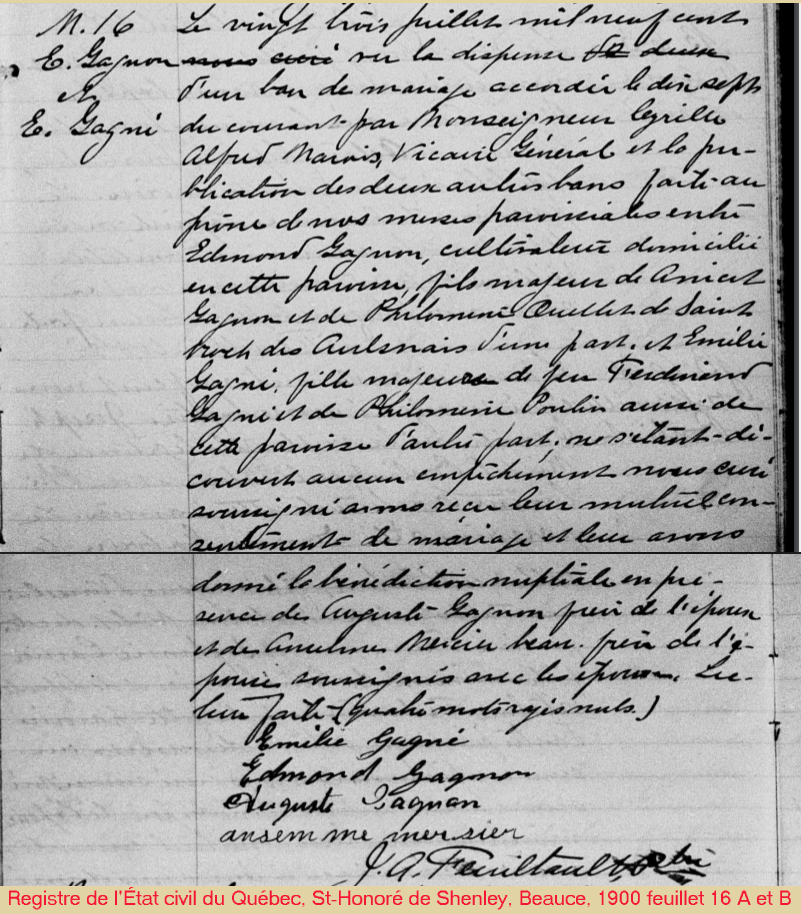 M. 16
E. Gagnon
et
E. Gagné
Le vingt trois juillet mil neuf cent
nous curé vu la dispense de deux
d'un ban de mariage accordée le dix sept
du courant par Monseigneur Cyrille
Alfred Marois, Vicaire Général et la pu-
blication des deux autres bans faite au
prône de nos messes paroissiales entre
Edmond Gagnon, cultivateur domicilié
en cette paroisse, fils majeur de Anicet
Gagnon et de Philomène Ouellet de Saint
Roch des Aulsnais d'une part, et Emélie
Gagné, fille majeure de feu Ferdinand
Gagné et de Philomène Poulin aussi de
cette paroisse d'autre part; ne s'étant dé-
couvert aucun empêchement nous curé
soussigné avons reçu leur mutuel con-
sentement de mariage et leur avons
donné la bénédiction nuptiale en pré-
sence de Auguste Gagnon frère de l'époux
et de Anselme Mercier beau-frère de l'é-
pouse soussignés avec les époux. Lec-
ture faite (quatre mots rayés nuls.)
Emilie Gagné
Edmond Gagnon
Auguste Gagnon
ansemme mersier
J. A. Feuiltault Ptre
Registre de l'État civil du Québec, St-Honoré de Shenley, Beauce, 1900 feuillet 16 A et B